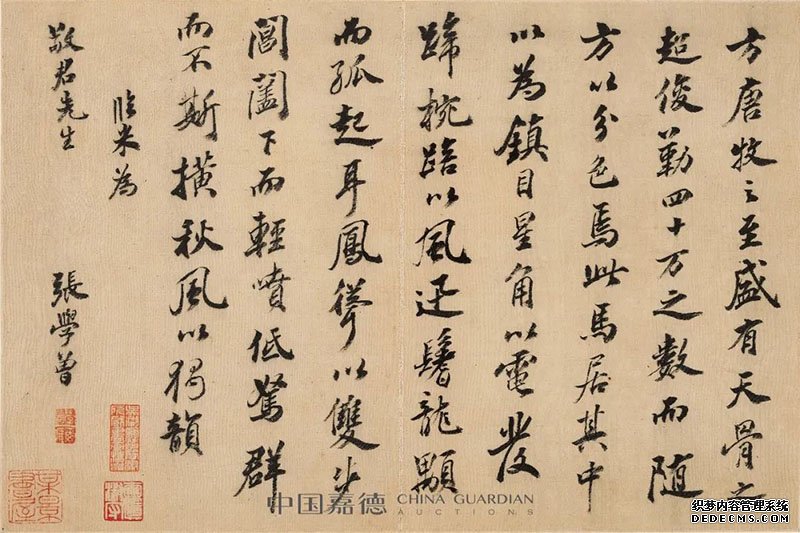 方唐牧之至盛有天骨之
超俊勒四十万之數而随
方以分色焉此馬居其中
以為鎮目星角以電發
蹄椀踣以風迅鬐龍顒
而孤起耳鳳聳以雙
閶闔下而輕噴低駑群
而不斯橫秋風以獨韻
臨米為
敬君先生
張學曾
中国嘉德 CHINA GUARDIAN
AUCTIONS
织梦内容管理系统
DEDECMS.COM